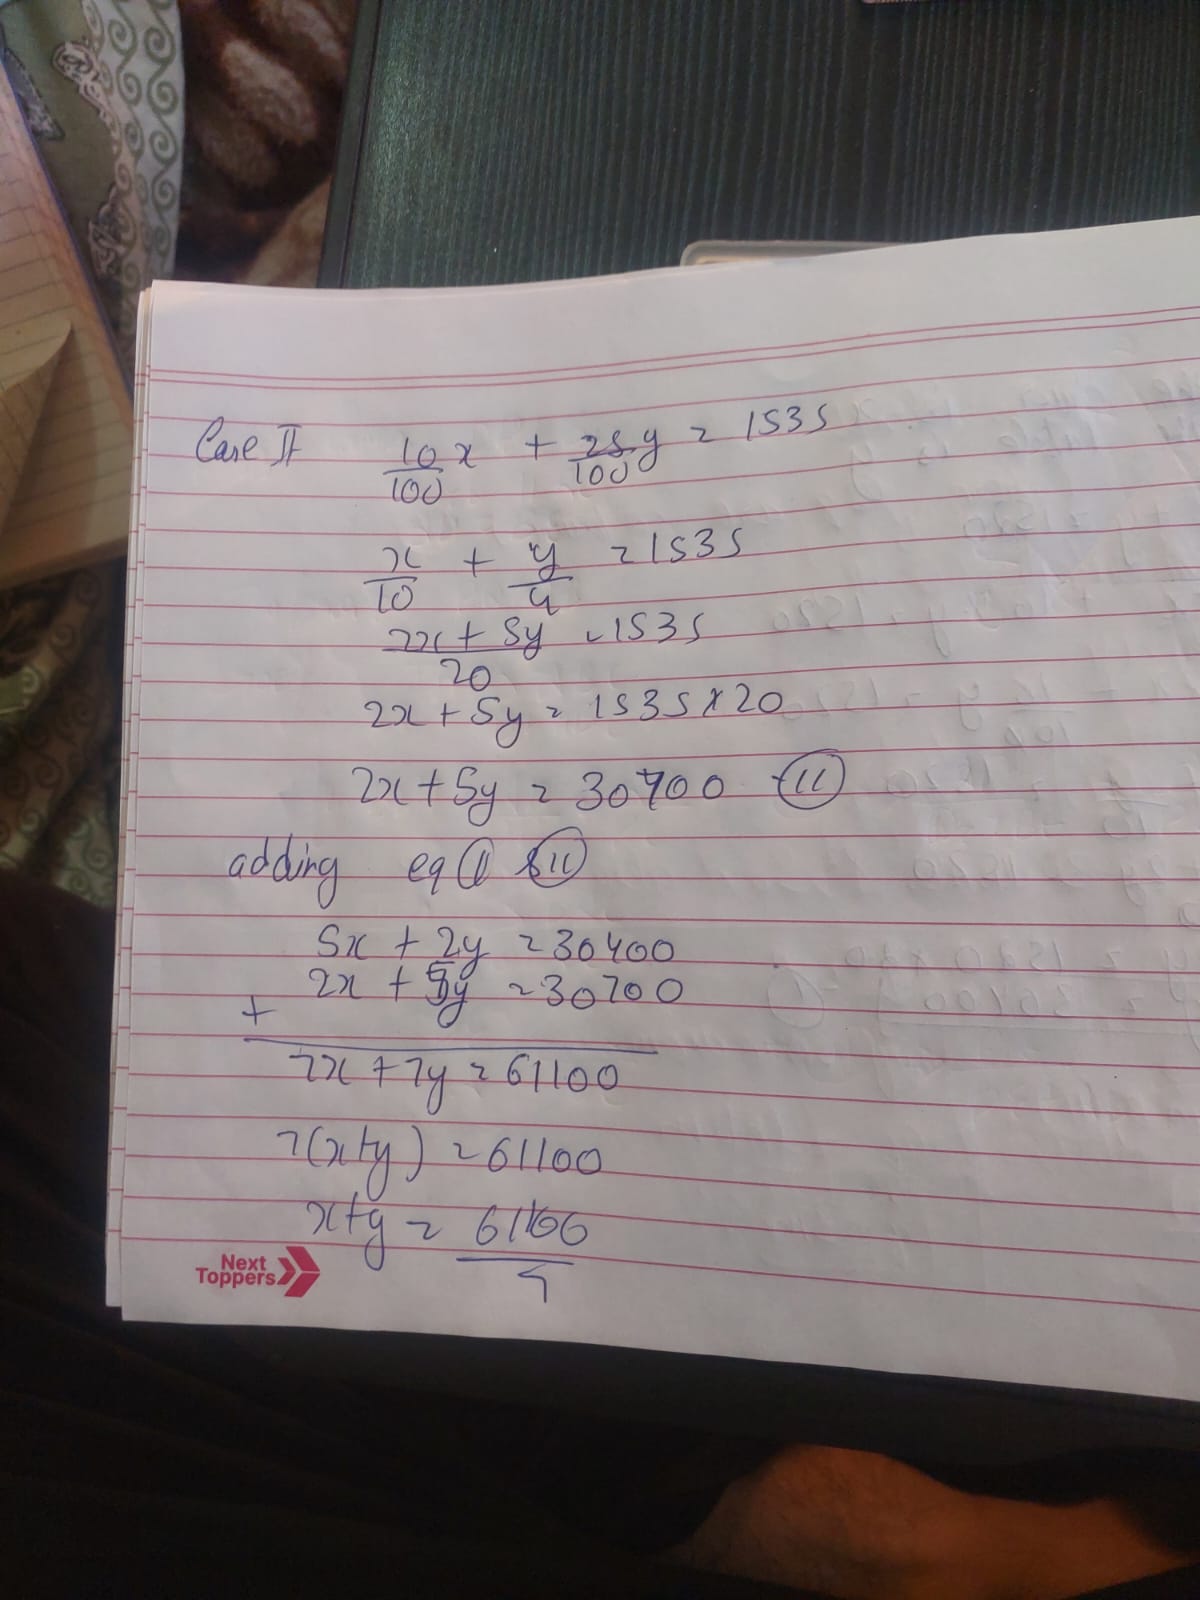 Case II 10/100 x + 25/100 y = 1535
x/10 + y/4 = 1535
2x + 5y / 20 = 1535
2x + 5y = 1535 x 20
2x + 5y = 30700 - (II)
adding eq (I) & (II)
5x + 2y = 30400
2x + 5y = 30700
+
7x + 7y = 61100
7(x+y) = 61100
x+y = 61100 / 7
Next
Toppers